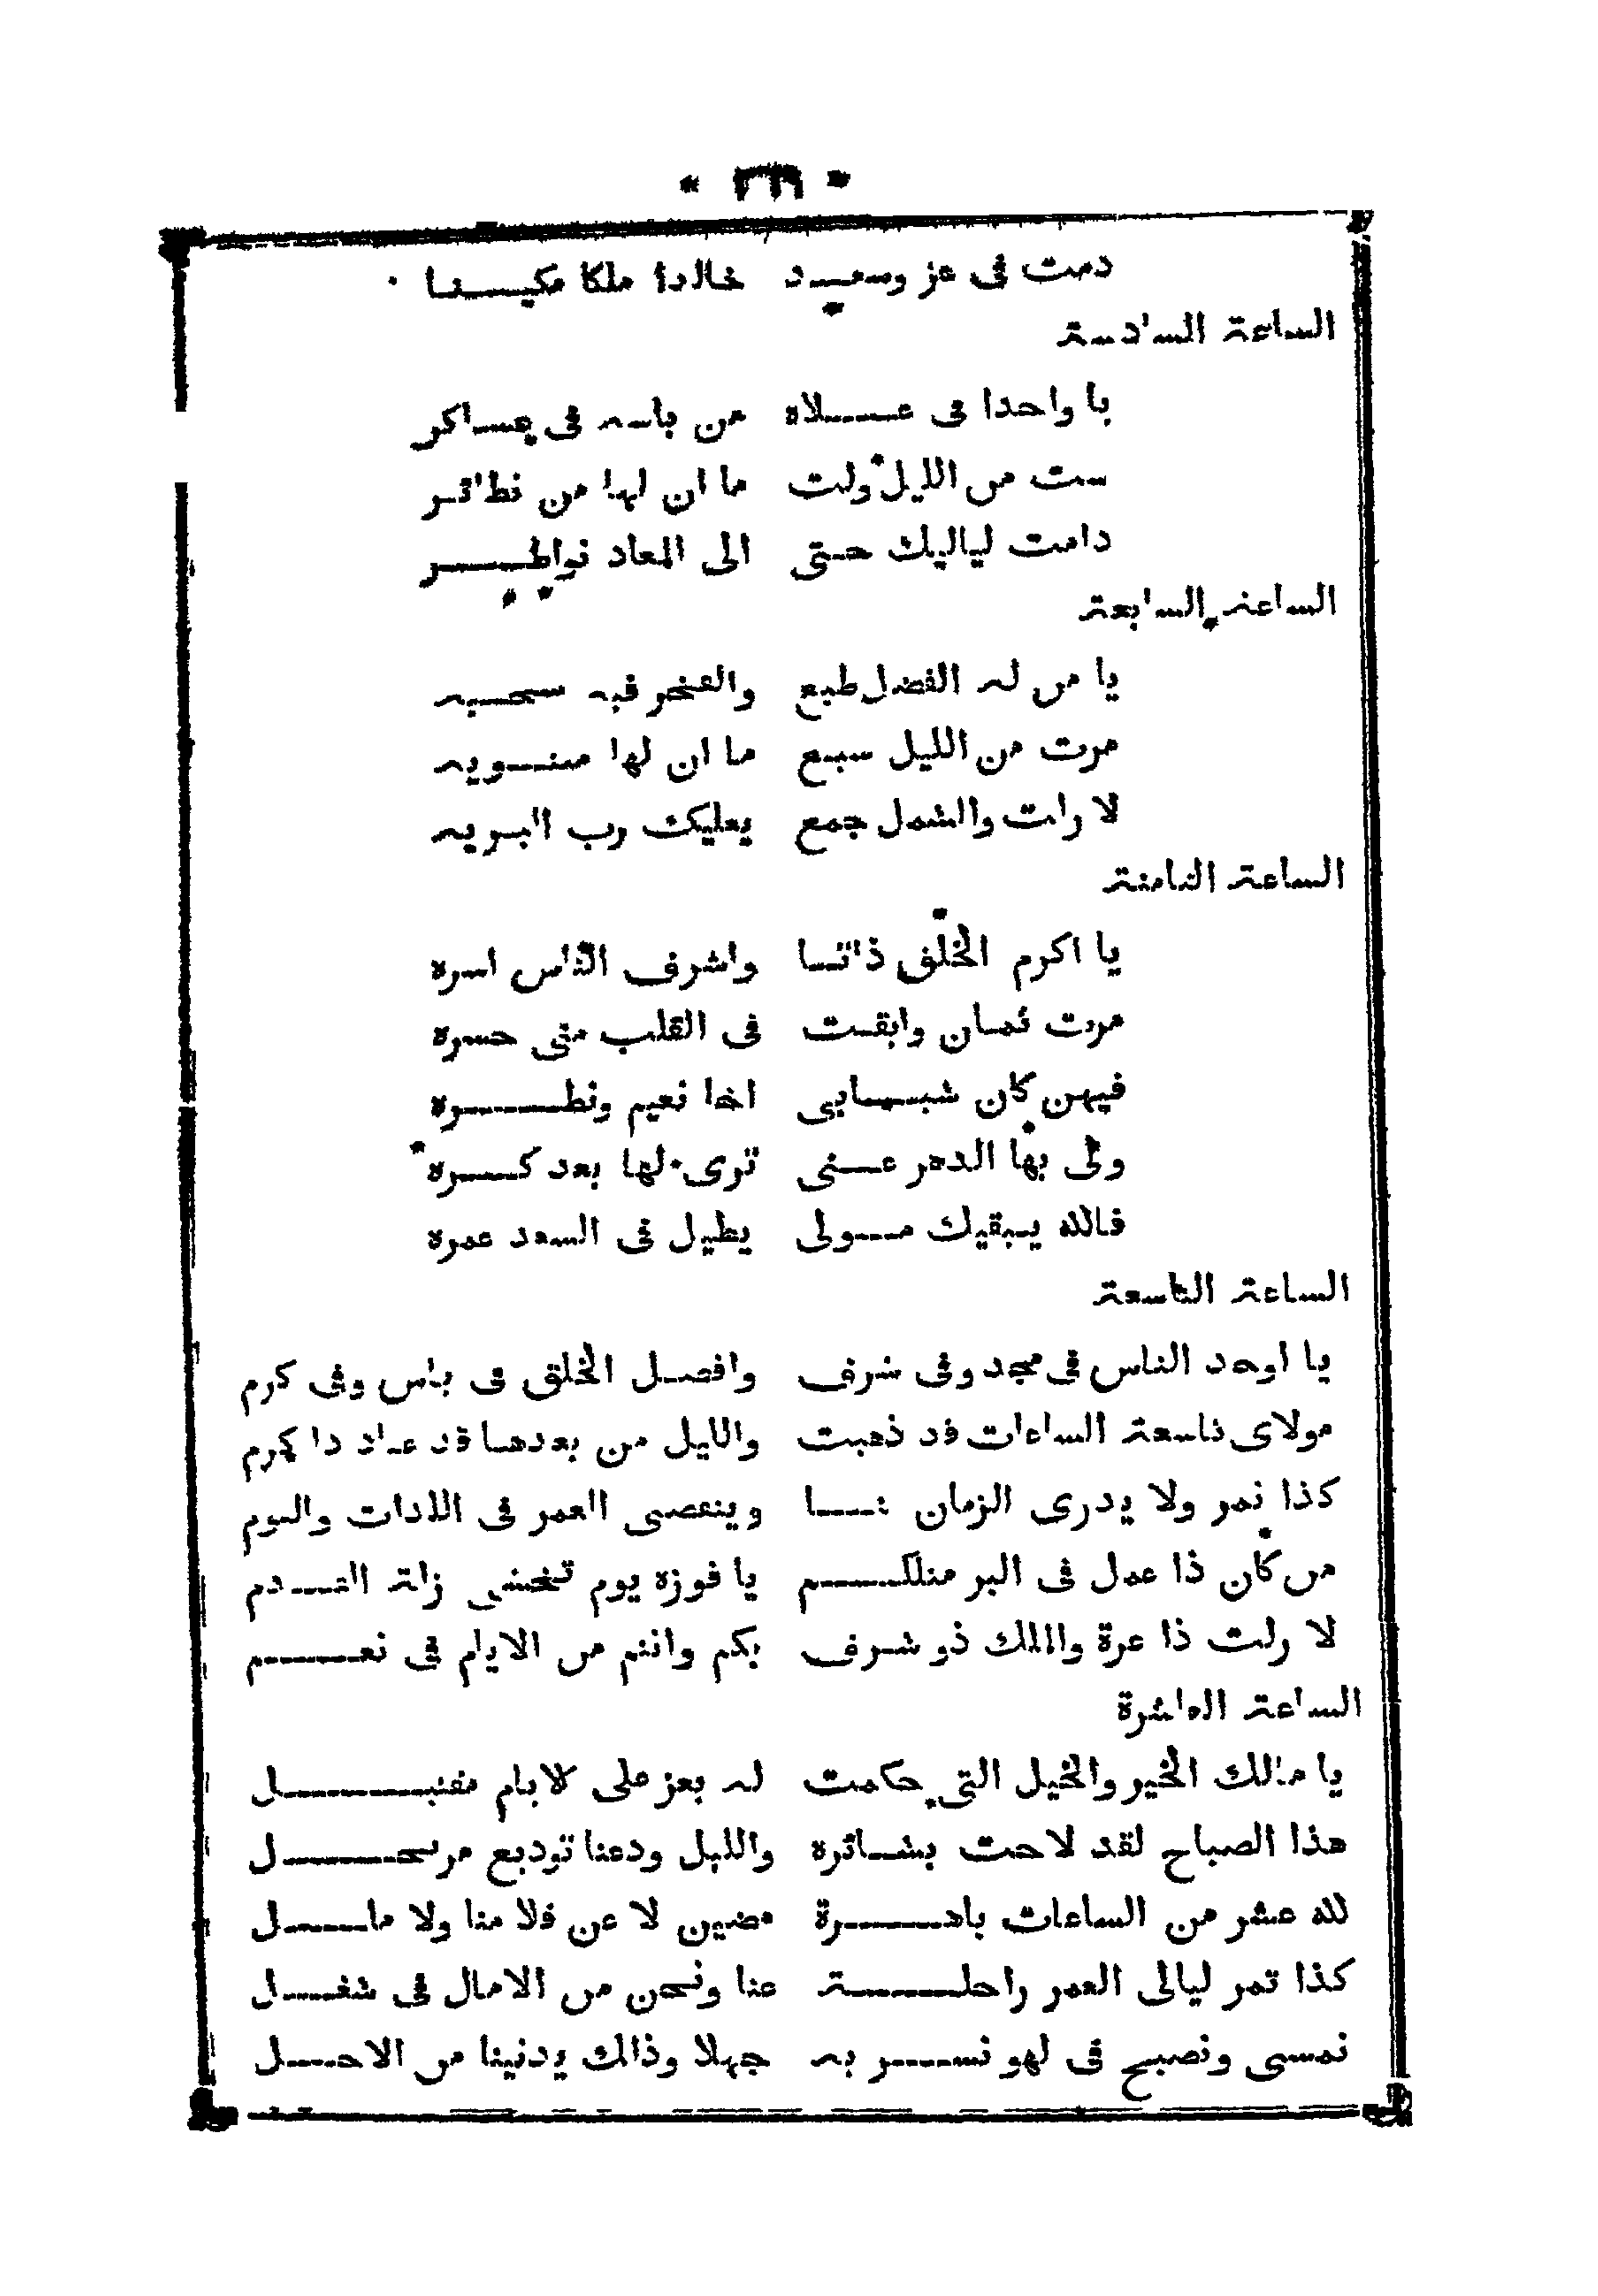 دمت فى عز وسعيد خالدا ملكا مكينا
الساعة السادسة
يا واحدا فى علاه من باسه فى عساكر
ست من الليل ولت ما ان لها من نظائر
دامت لياليك حتى الى المعاد نواظر
الساعة السابعة
يا من له الفضل طبع والفخر فيه سجيه
مرت من الليل سبع ما ان لها مثنويه
لا زلت والشمل جمع يعليك رب البريه
الساعة الثامنة
يا اكرم الخلق ذاتا واشرف الناس اسره
مرت ثمان وابقت فى القلب منى حسره
فيهن كان شبابى اخا نعيم ونظره
ولى بها الدهر عنى ترى لها بعد كره
فالله يبقيك مولى يطيل فى السعد عمره
الساعة التاسعة
يا اوحد الناس فى مجد وفى شرف وافضل الخلق فى باس وفى كرم
مولاى تاسعة الساعات قد ذهبت والليل من بعدها قد عاد ذا هرم
كذا تمر ولا يدرى الزمان بنا وينقضى العمر فى اللذات والنوم
من كان ذا عمل فى البر مثلكم يا فوزه يوم تخشى زلة القدم
لا زلت ذا عزة والملك ذو شرف بكم وانتم من الايام فى نعم
الساعة العاشرة
يا مالك الخير والخيل التى حكمت له بعز على الايام مقتبل
هذا الصباح لقد لاحت بشائره والليل ودعنا توديع مرتحل
لله عشر من الساعات باهرة مضين لا عن قلا منا ولا ملل
كذا تمر ليالى العمر راحلة عنا ونحن من الامال فى شغل
نمسى ونصبح فى لهو نسر به جهلا وذالك يدنينا من الاجل